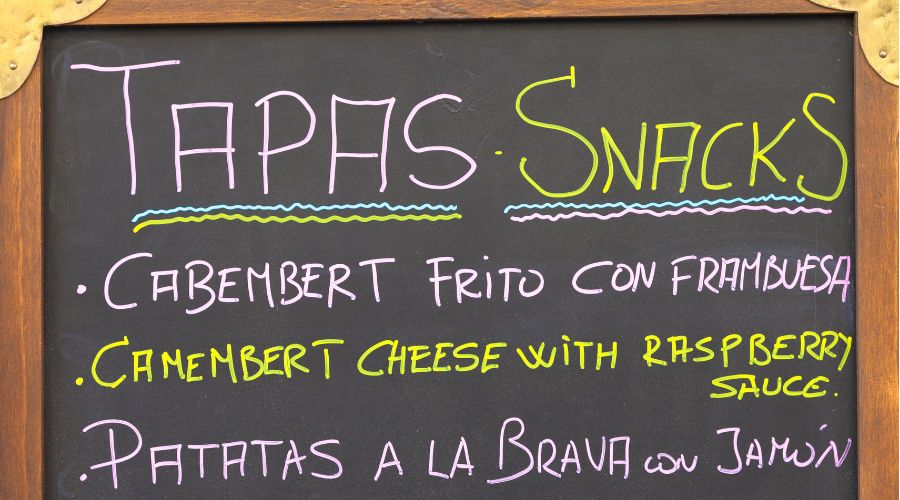 TAPAS · SNACKS
· CABEMBERT FRITO CON FRAMBUESA
· CAMEMBERT CHEESE WITH RASPBERRY
SAUCE.
· PATATAS A LA BRAVA CON JAMÓN